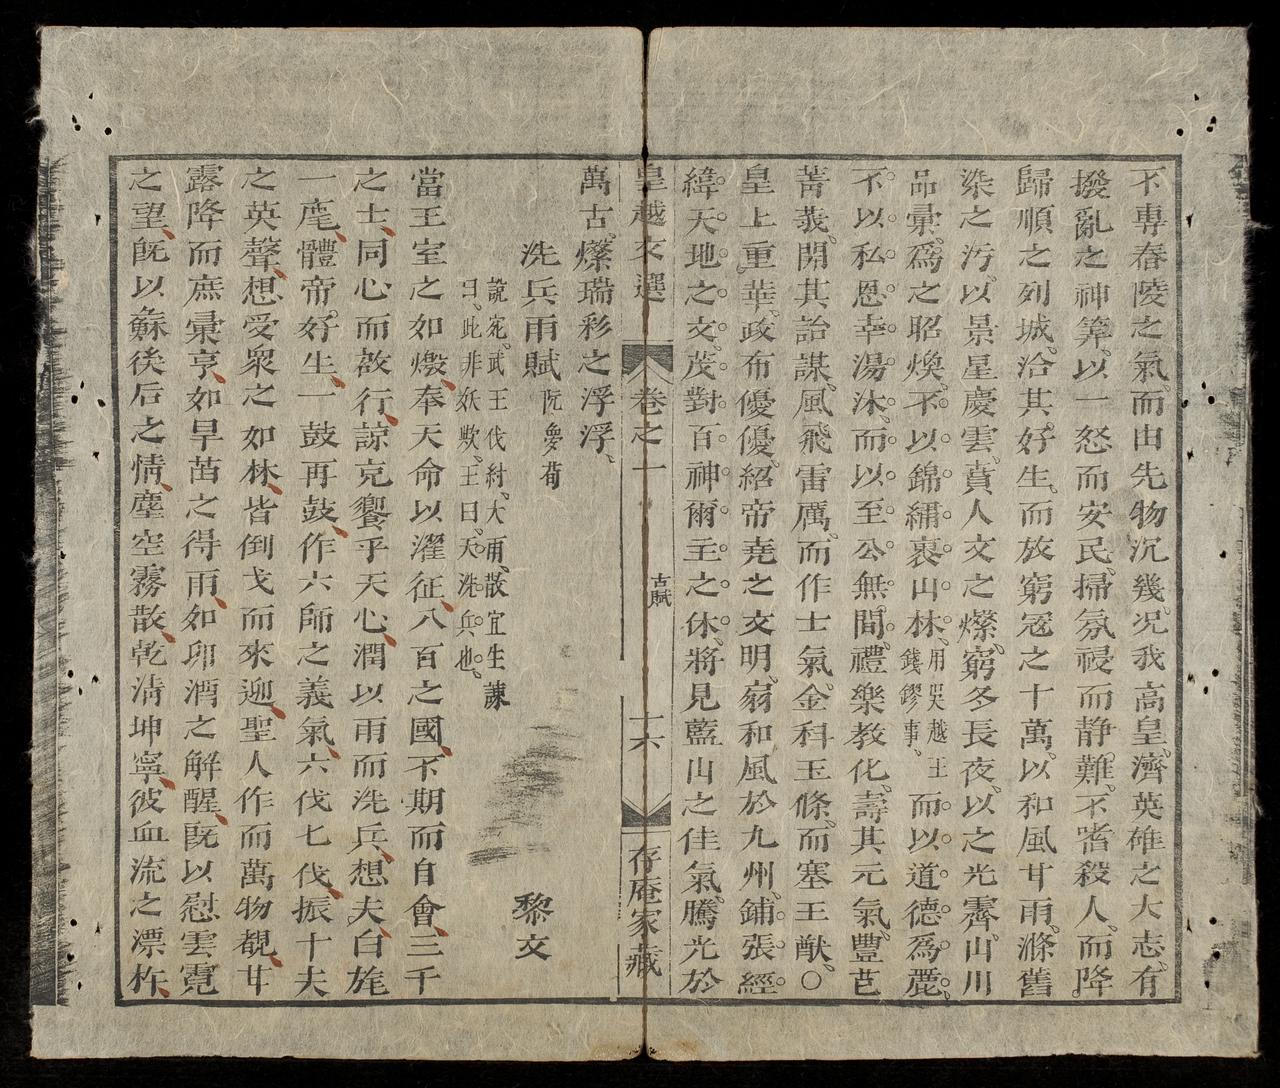 不專春陵之氣而由先物沉幾况我高皇濟英雄之大志有
撥亂之神筭以一怒而安民掃氛祲而靜難不嗜殺人而降
歸順之列城洽其好生而放窮冦之十萬以和風甘雨滌舊
染之汚以景星慶雲賁人文之燦窮冬長夜以之光霽山川
品彙爲之昭煥不以錦繡裹山林用吳越王錢鏐事而以道德爲麗
不以私恩幸湯沐而以至公無間禮樂敎化壽其元氣豐芑
菁莪開其詒謀風飛雷厲而作士氣金科玉條而塞王猷〇
皇上重華政布優優紹帝堯之文明翕和風於九州鋪張經
緯天地之文茂對百神爾主之休將見藍山之佳氣騰光於
皇越文選 卷之一 古賦 十六 存庵家藏
萬古燦瑞彩之浮浮
洗兵雨賦 阮夢荀 黎文
說宛武王伐紂大雨散宜生諫
曰此非妖歟王曰天洗兵也
當王室之如燬奉天命以濯征八百之國不期而自會三千
之士同心而敌行諒克饗乎天心潤以雨而洗兵想夫白旄
一麾體帝好生一鼓再鼓作六師之義氣六伐七伐振十夫
之英聲想受衆之如林皆倒戈而來迎聖人作而萬物覩甘
露降而庶彙亨如旱苗之得雨如卯酒之解酲旣以慰雲霓
之望旣以蘇徯后之情塵空霧散乾淸坤寧彼血流之漂杵